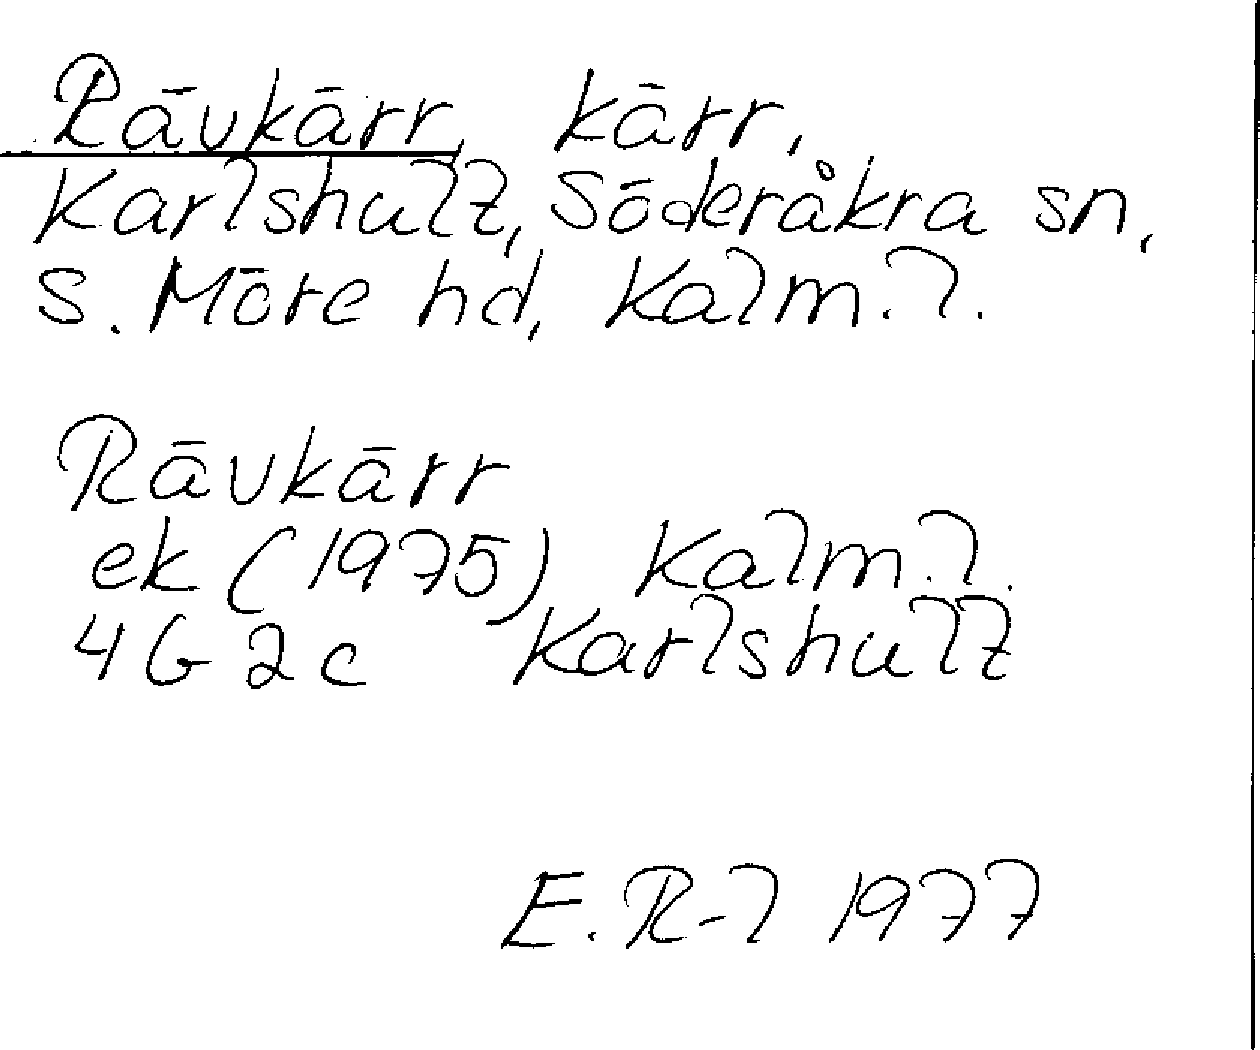 Rävkärr, kärr,
Karlshult, Söderåkra sn,
S. Möre hd, Kalm. l.
Rävkärr
ek (1975) Kalm. l.
4G 2c Karlshult
E. R-l 1977